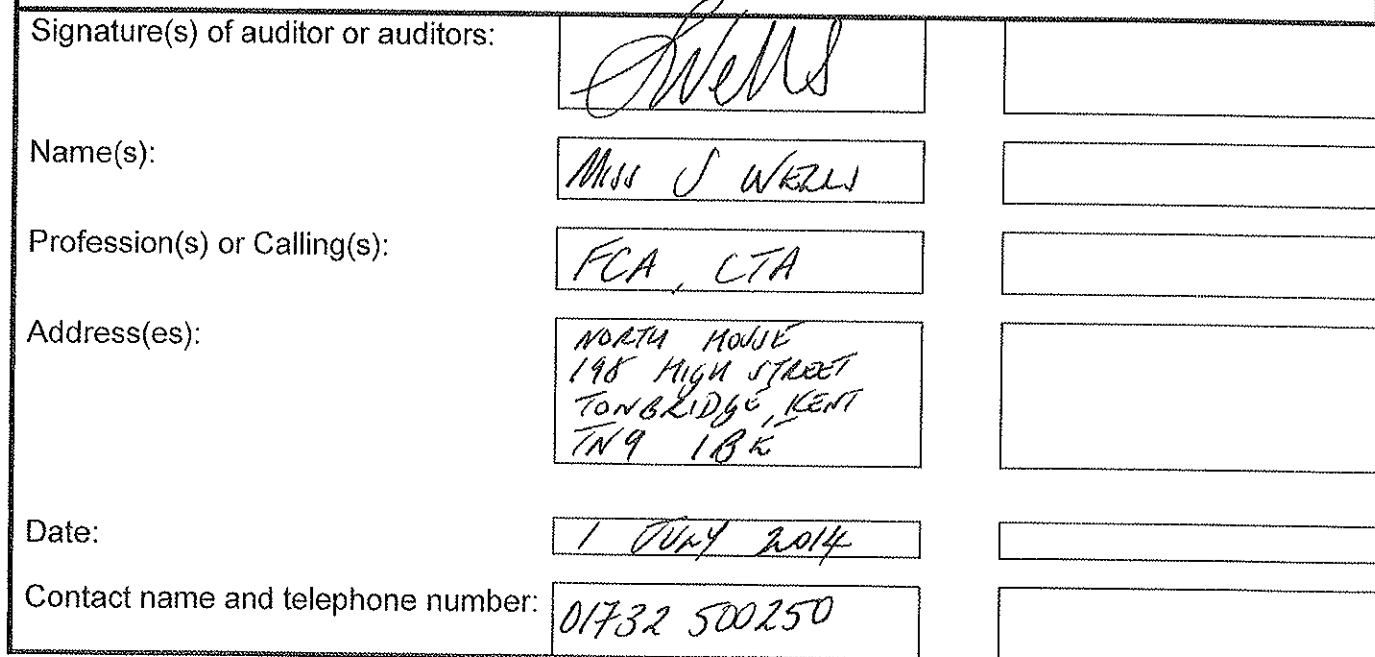 Signature(s) of auditor or auditors:
SWells
Name(s):
MISS S WELLS
Profession(s) or Calling(s):
FCA, CTA
Address(es):
NORTH HOUSE
198 HIGH STREET
TONBRIDGE, KENT
TN9 1BE
Date:
1 JULY 2014
Contact name and telephone number:
01732 500250